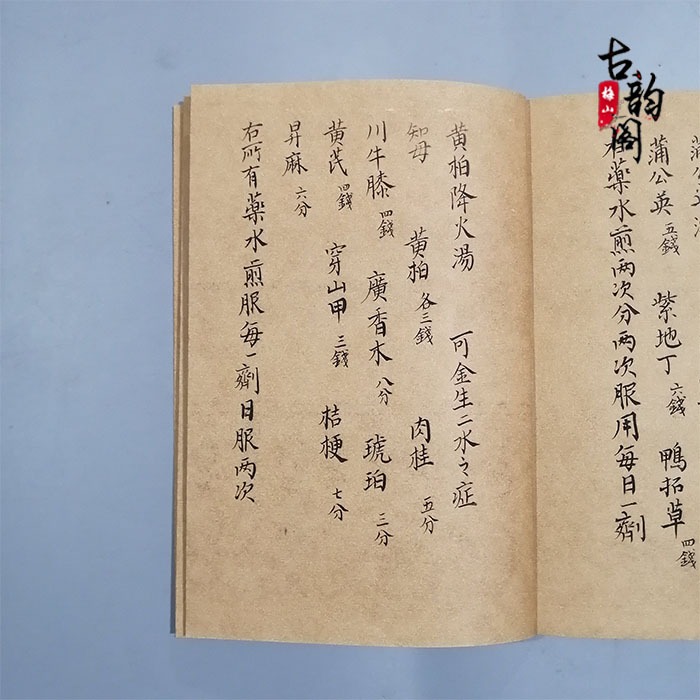 蒲公英 五錢 紫地丁 六錢 鴨拓草 四錢
藥水煎两次分两次服用每日一劑
黄柏降火湯 可金生二水之症
知母 黄柏 各三錢 肉桂 五分
川牛膝 四錢 廣香木 八分 琥珀 三分
黄芪 四錢 穿山甲 三錢 桔梗 七分
昇麻 六分
右所有藥水煎服每一劑日服两次
古韵阁
梅山